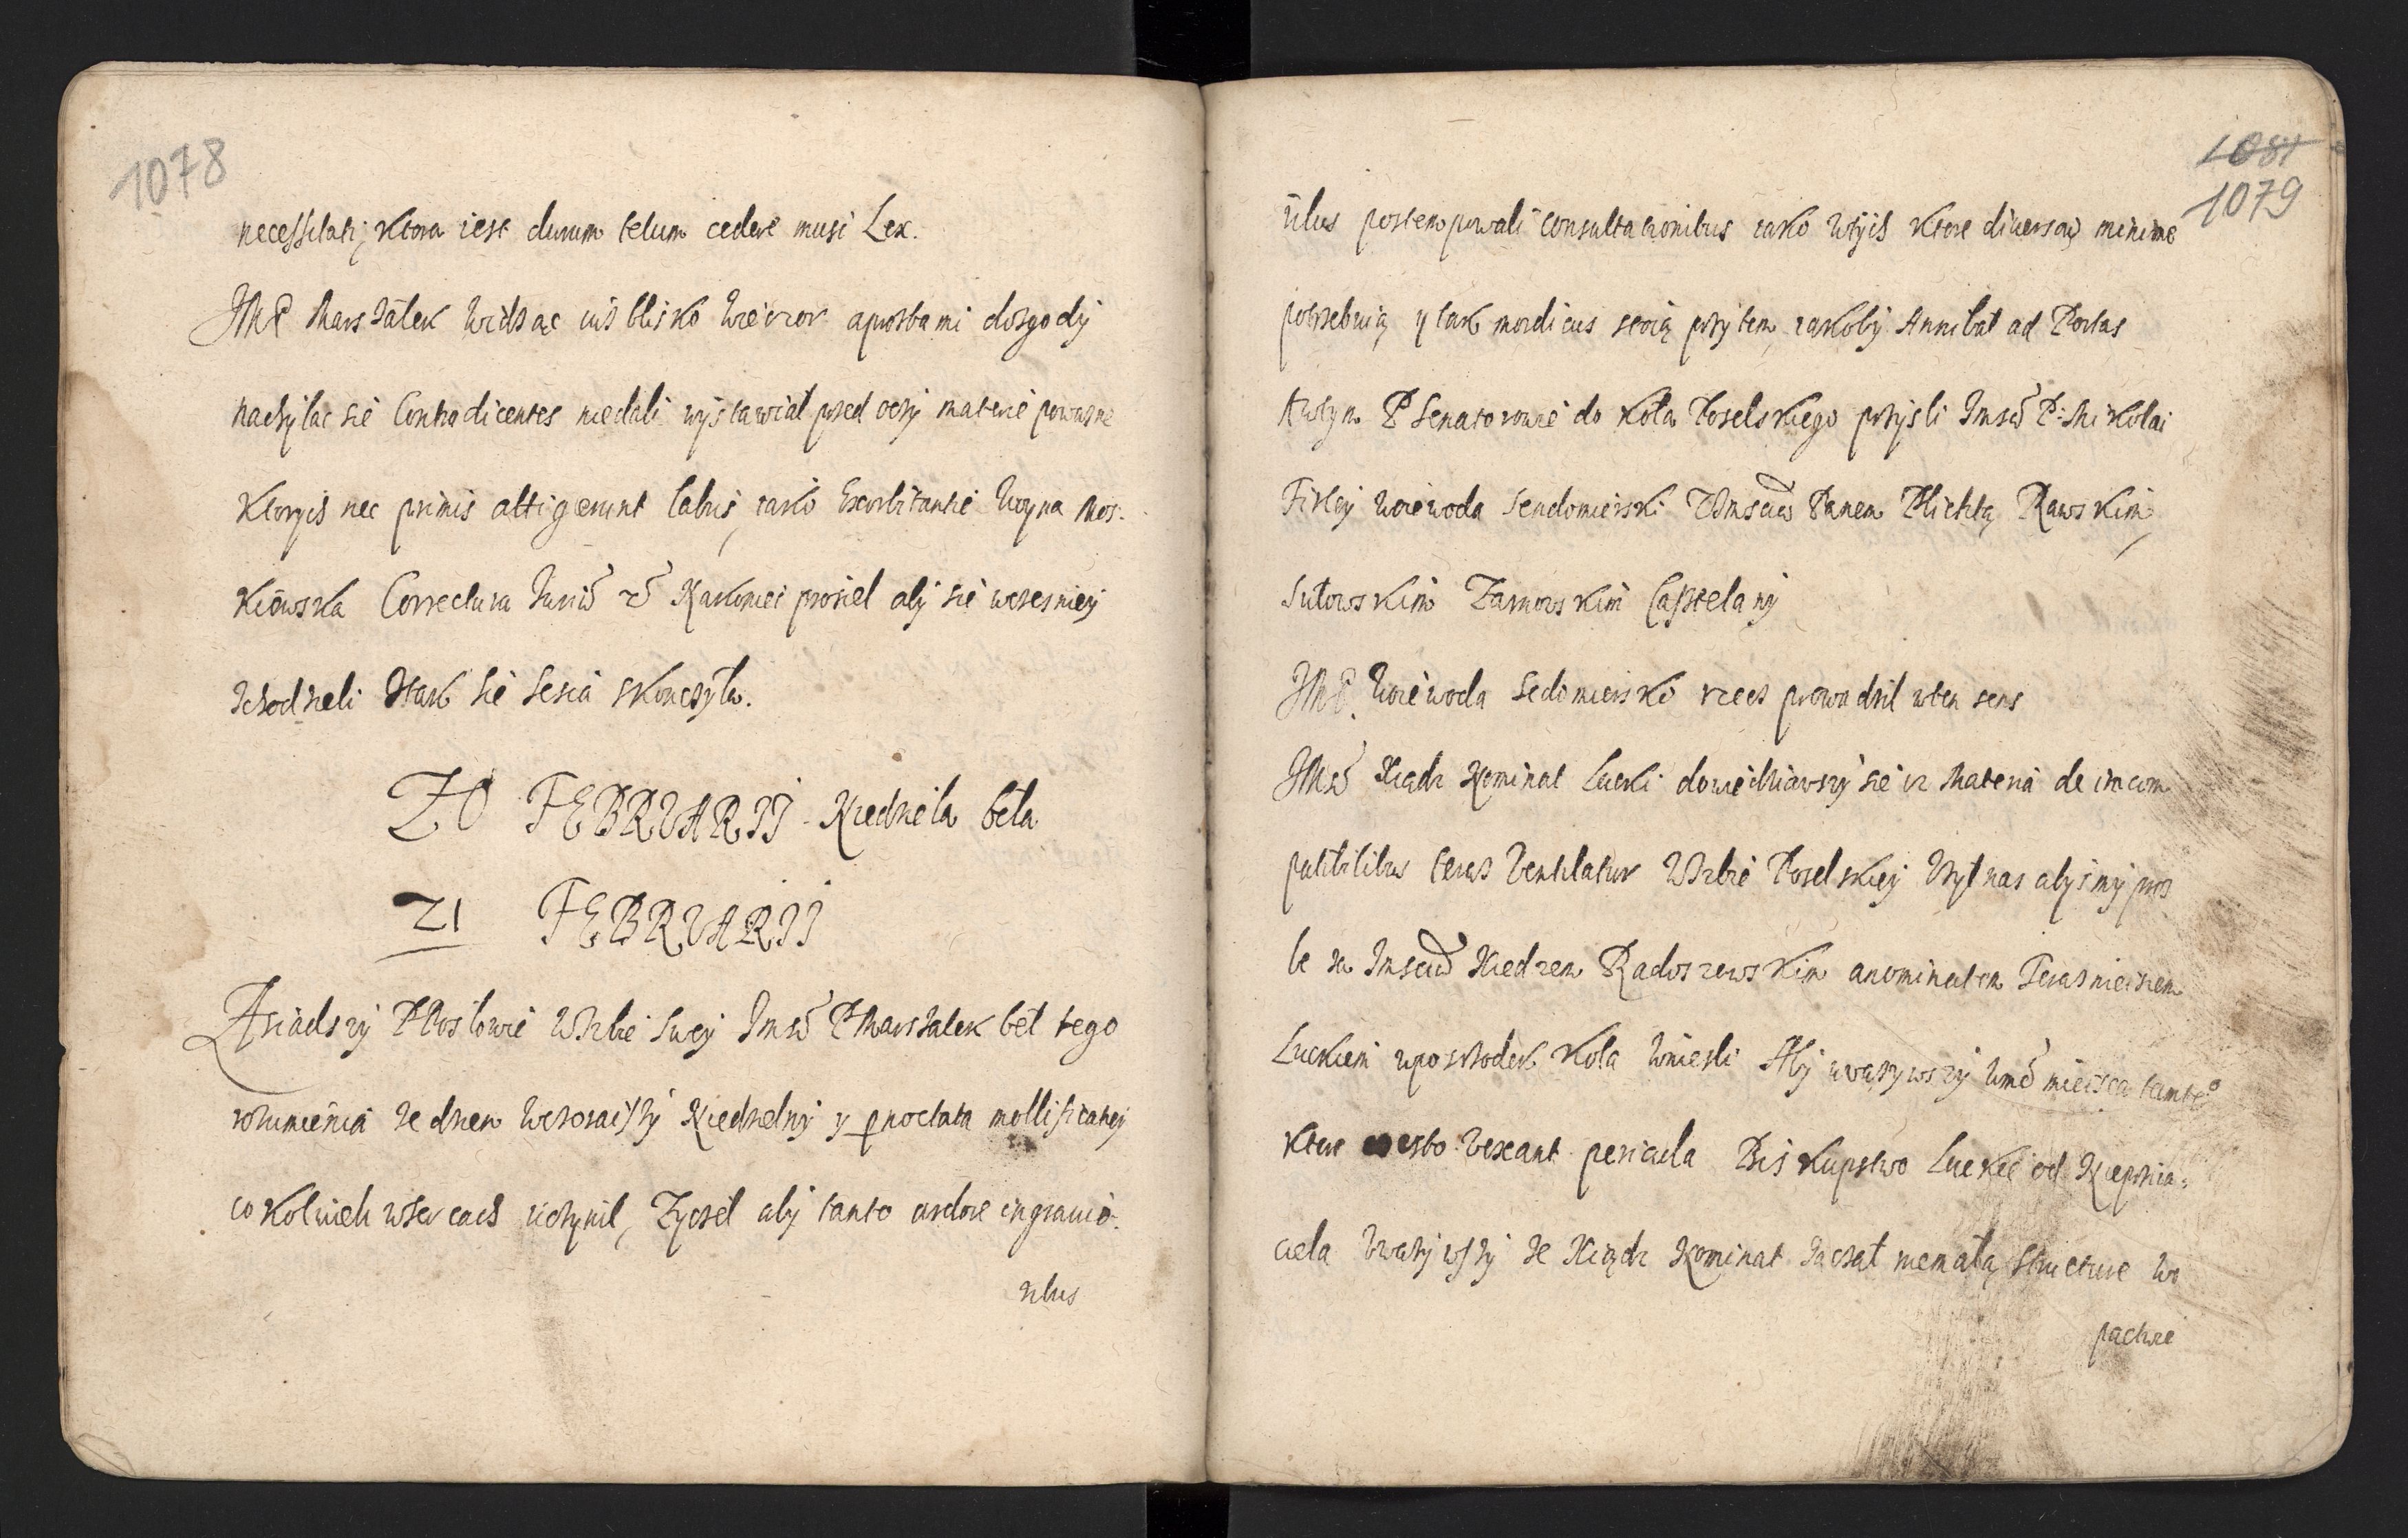 1078
necessitati, ktora iest durum telum cedere musi Lex.
JMP Marszałek widząc iusz blisko wieczor a prosbami do zgody
nachylac sie Contradicentes niedali wystawiał przed oczy materie powazne
ktorych nec primis attigerunt labris, iako Exorbitantie Woyna Mos-
kiewska Correctura Iuris etc Nakoniec prosiel aby sie wczesniey
schodzieli Itak sie Sesia skonczyła.
20 FEBRUARII Niedziela beła
21 FEBRUARII
Zasiadszy PPosłowie w Izbie swey Imsc P Marszałek beł tego
rozumienia ze dzien wczoraiszy Niedzielny y pnoctata mollificatiey
cokolwiek w sercach uczynił, Zyczeł aby tanto ardore in gravio-
ribus
1081
1079
ribus postempowali consultationibus iako w tych ktore diversow minime
potrzebuią y tak mordicus stoią przy tem, iakoby Annibal ad Portas
A w tym P Senatorowie do Koła Poselskiego przysli Imsc P: Mikołai
Firley Woiewoda Sendomierski Z Imscią Panem Plichtą Rawskim,
Sułowskim Zarnowskim Casztelany
JMP. Woiewoda Sędomierski rzecz prowadził w ten sens
JMsc Xiądz Nominat Lucki dowiedziawszy sie iz Materia de incom
patibilibus teraz ventilatur w Izbie Poselskiey Uzył nas abysmy pros
be za Imscią Xiedzem Radoszewskim a nominatem Terazniejszem
Luckiem w posrzodek Koła wniesli Aby uwazywszy Wmc mieisca tamtego
ktore czesto vexant pericula Biskupstwo Luckie od Nieprzia-
ciela Uwazywszy ze Xiądz Nominat zaczął niemałą structure w o
pactwie